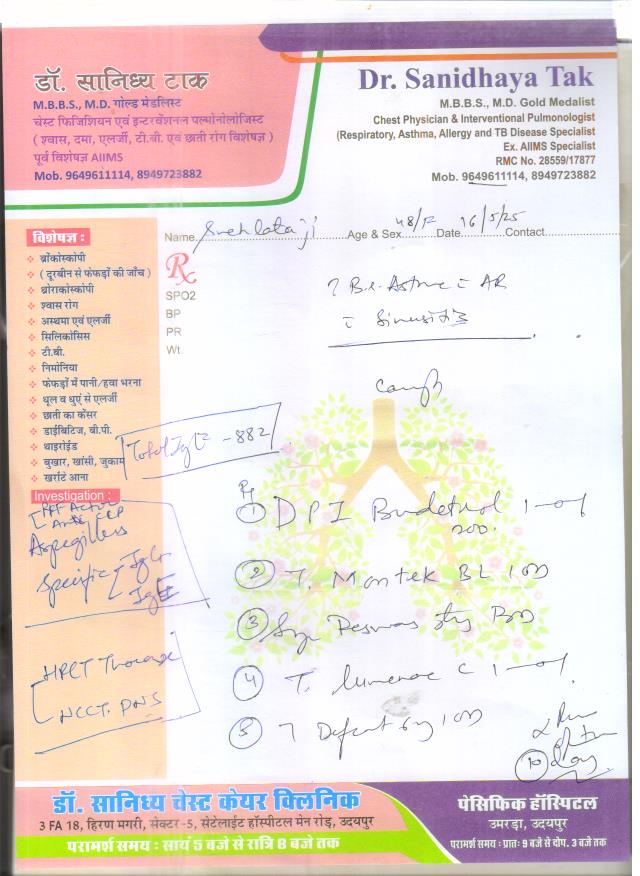 डॉ. सानिध्य टाक
M.B.B.S., M.D. गोल्ड मेडलिस्ट
चेस्ट फिजिशियन एवं इन्टरवेंशनल पल्मोनोलोजिस्ट
( श्वास, दमा, एलर्जी, टी.बी. एवं छाती रोग विशेषज्ञ )
पूर्व विशेषज्ञ AIIMS
Mob. 9649611114, 8949723882
Dr. Sanidhaya Tak
M.B.B.S., M.D. Gold Medalist
Chest Physician & Interventional Pulmonologist
(Respiratory, Asthma, Allergy and TB Disease Specialist
Ex. AIIMS Specialist
RMC No. 28559/17877
Mob. 9649611114, 8949723882
Name Snehlata ji Age & Sex 48/F Date 16/5/25 Contact
विशेषज्ञ :
ब्रोंकोस्कोपी
( दूरबीन से फेफड़ों की जाँच )
थोराकोस्कोपी
श्वास रोग
अस्थमा एवं एलर्जी
सिलिकोसिस
टी.बी.
निमोनिया
फेफड़ों में पानी/हवा भरना
धूल व धुएं से एलर्जी
छाती का कैंसर
डाईबिटिज, बी.पी.
थाइरोईड
बुखार, खांसी, जुकाम
खर्राटे आना
Rx
SPO2
BP
PR
Wt.
? Br. Asthma c AR
c Sinusitis
Cough
Total IgE - 882
Investigation :
Anti CCP
Aspergillus
Specific IgG
IgE
HRCT Thorax
NCCT PNS
1 DPI Budetrol 1-01
200
2 T. Montek BL 1 OD
3 Syp BD
4 T. C 1-01
5 T Defcort 6mg 1 OD
10 day
डॉ. सानिध्य चेस्ट केयर क्लिनिक
3 FA 18, हिरण मगरी, सेक्टर -5, सेटेलाईट हॉस्पीटल मेन रोड़, उदयपुर
परामर्श समय : सायं 5 बजे से रात्रि 8 बजे तक
पेसिफिक हॉस्पिटल
उमरड़ा, उदयपुर
परामर्श समय : प्रातः 9 बजे से दोप. 3 बजे तक